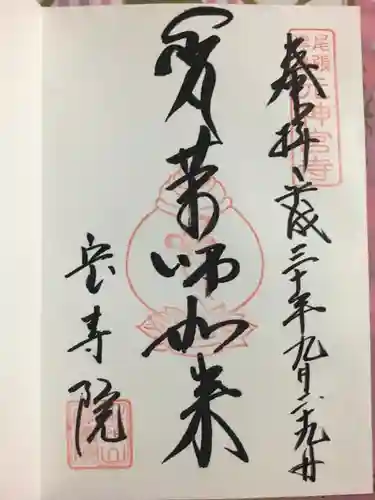 尾張
元神宮寺
奉拝 平成三十年九月二十九日
薬師如来
宝寿院